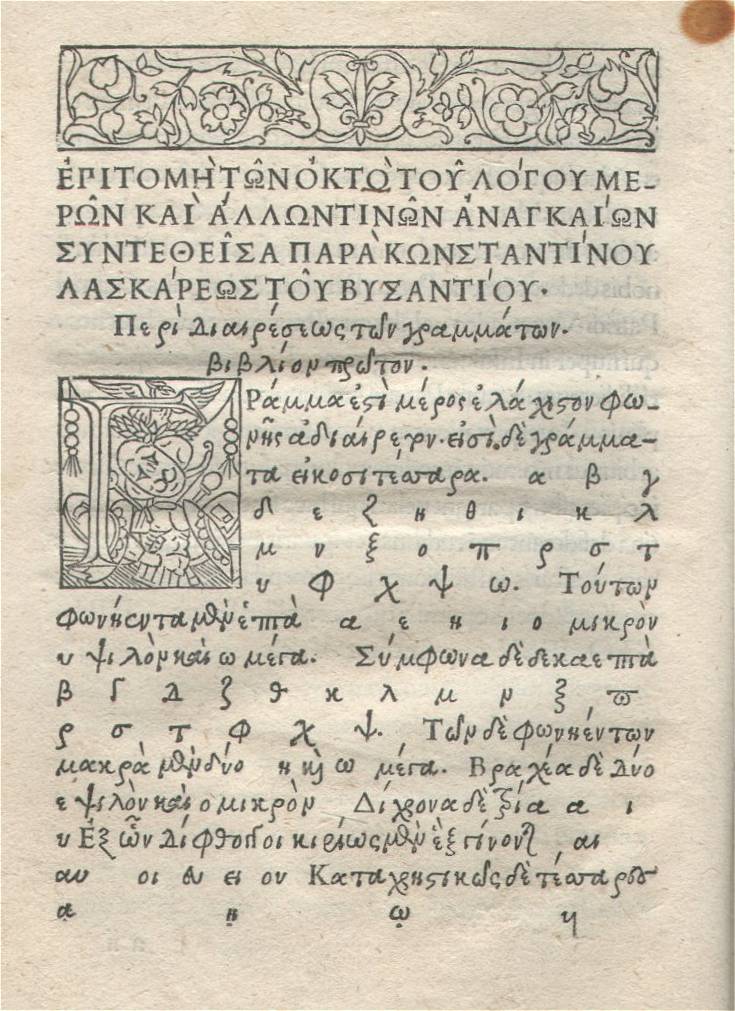 ἘΠΙΤΟΜῊ ΤΩ͂Ν ὈΚΤῺ ΤΟΥ͂ ΛΌΓΟΥ ΜΕ-
ΡΩ͂Ν ΚΑῚ ἌΛΛΩΝ ΤΙΝΩ͂Ν ἈΝΑΓΚΑΊΩΝ
ΣΥΝΤΕΘΕΙ͂ΣΑ ΠΑΡᾺ ΚΩΝΣΤΑΝΤΊΝΟΥ
ΛΑΣΚΆΡΕΩΣ ΤΟΥ͂ ΒΥΖΑΝΤΊΟΥ·
Περὶ Διαιρέσεως τῶν γραμμάτων.
βιβλίον πρῶτον.
Γράμμα ἐστὶ μέρος ἐλάχιστον φω-
νῆς ἀδιαίρετον. εἰσὶ δὲ γράμμα-
τα εἰκοσιτέσσαρα. α β γ
δ ε ζ η θ ι κ λ
μ ν ξ ο π ρ σ τ
υ φ χ ψ ω. Τούτων
φωνήεντα μὲν ἑπτὰ α ε η ι ο μικρὸν
υ ψιλὸν καὶ ω μέγα. Σύμφωνα δὲ δεκαεπτὰ
β γ δ ζ θ κ λ μ ν ξ π
ρ σ τ φ χ ψ. Τῶν δὲ φωνηέντων
μακρὰ μὲν δύο η καὶ ω μέγα. Βραχέα δὲ Δύο
ε ψιλὸν καὶ ο μικρὸν Δίχρονα δὲ τρία α ι
υ Ἐξ ὧν Δίφθογγοι κυρίως μὲν ἓξ γίνονται αι
αυ οι ευ ει ου Καταχρηστικῶς δὲ τέσσαρες
ᾳ ῃ ῳ υι